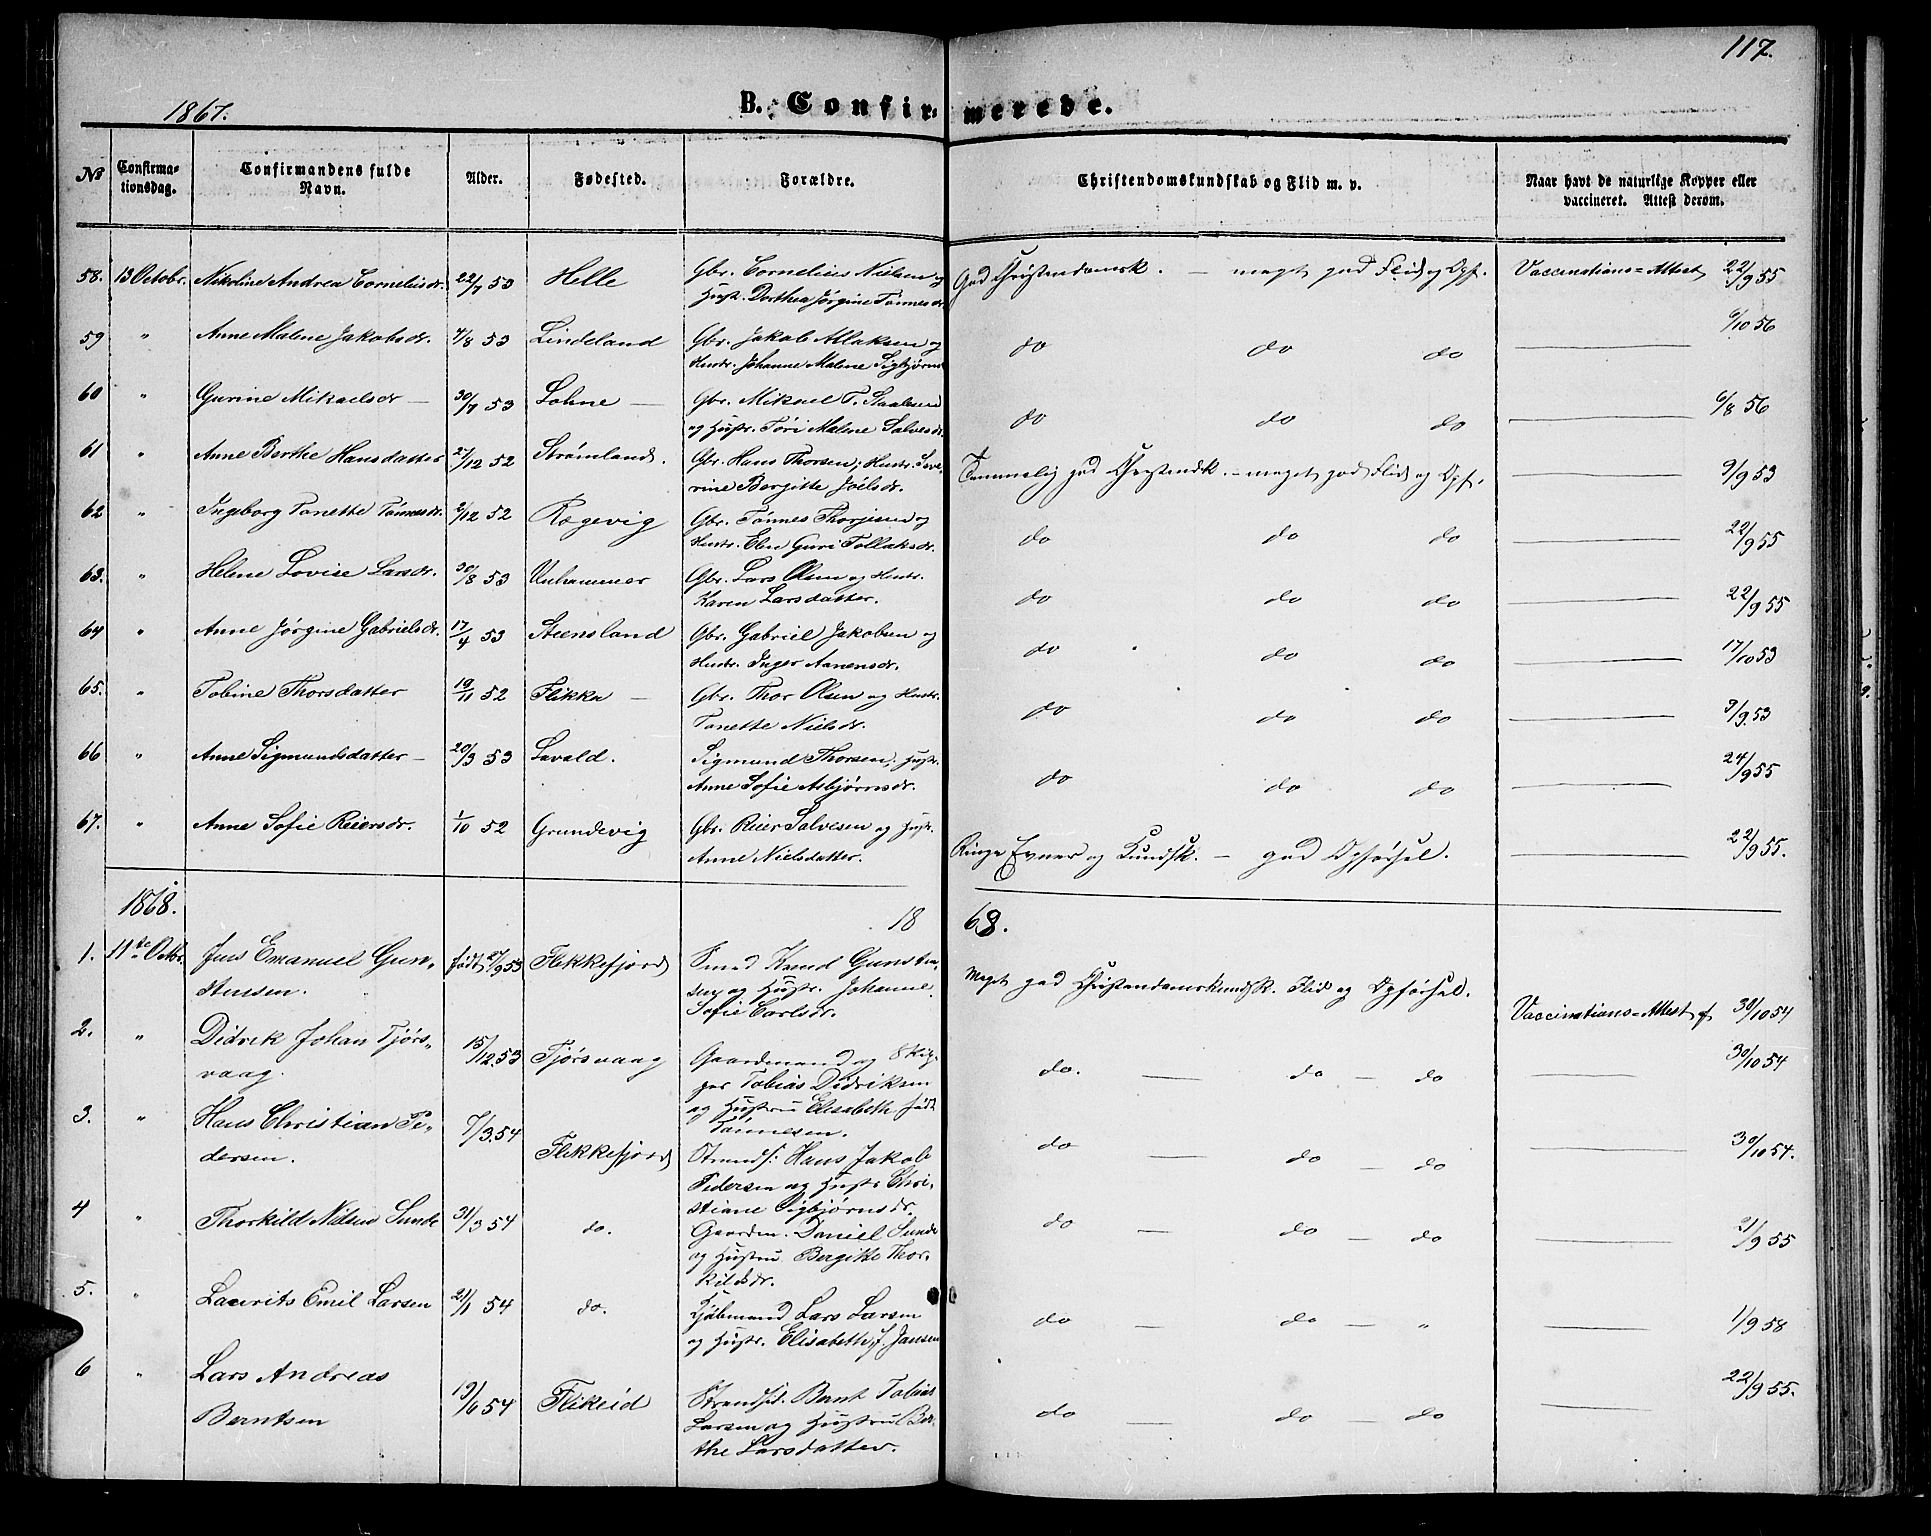 117.
1867.
B. Confirmerede.
№ Confirmationsdag. Confirmandens fulde Navn. Alder. Fødested. Forældre. Christendomskundskab og Flid m. v. Naar havt de naturlige Kopper eller vaccineret. Attest derom.
58. 13 Octobr. Nikoline Andrea Cornelisdr. 22/7 53 Helle Gbr. Cornelius Nielsen og God Christendomsk. — meget god Flid og Opf. Vaccinations=Attest 22/9 55
Hustr. Dorthea Jørgine Tønnesdr.
59 " Anne Malene Jakobsdr. 4/8 53 Lindeland Gbr. Jakob Atlaksen og do do do 6/10 56
Hustr. Johanne Malene Sigbjørns
60 " Gurine Mikaelsdr — 30/7 53 Lohne — Gbr. Mikael T. Staalesen do do do 6/8 56
og Hustr. Tøri Malene Salvesdr.
61 " Anne Berthe Hansdatter 27/12 52 Strømland. Gbr. Hans Thorsen, Hustr. Seve- Temmelig god Christendk. — meget god Flid og Opf. 9/9 53
rine Bergitte Joëlsdr.
62 " Ingeborg Tonette Tønnesdr. 2/12 52 Rægevig Gbr. Tønnes Thorjesen og do do do 22/9 55
Hustr. Elen Guri Tollaksdr.
63. " Helene Lovise Larsdr. 30/8 53 Unhammer Gbr. Lars Olsen og Hustr. do do do 22/9 55
Karen Larsdatter.
64 " Anne Jørgine Gabrielsdr. 17/4 53 Steensland Gbr. Gabriel Jakobsen og do do do 17/10 53
Hustr. Inger Aanensdr.
65. " Tobine Thorsdatter 19/11 52 Flikka — Gbr. Thor Olsen og Hustr. do do do 3/9 53
Tonette Nielsdr.
66 " Anne Sigmundsdatter — 20/3 53 Lavold. Sigmund Thorsen, Hustr. do do do 24/9 55
Anne Sofie Asbjørnsdr.
67. " Anne Sofie Reiersdr. 1/10 52 Grundevig Gbr. Reier Salvesen og Hustr. Ringe Evner og Kundsk. — god Opførsel. 22/9 55.
Anne Nielsdatter.
1868. 18 68.
1. 11te Octbr. Jens Emanuel Gun- født 27/9 53 Flekkefjord Smed Knud Gunsten- Meget god Christendomskundsk. Flid og Opførsel. Vaccinations=Attest f 30/10 54
stensen. sen og Hustr. Johanne
Sofie Carlsdr.
2. " Didrik Johan Tjørs- 15/12 53 Tjørsvaag Gaardmand og Skip- do. — do — do 30/10 54
vaag. per Tobias Didriksen
og Hustru Elisabeth født
Tønnesen.
3. " Hans Christian Pe- 7/3 54 Flekkefjord Strands: Hans Jakob do — do — do 30/10 54.
dersen. Pedersen og Hustr Chri-
stiane Sigbjørnsdr.
4 " Thorkild Nilsen Sunde 31/3 54 do. Gaardm. Daniel Sunde do — do — do 21/9 55
og Hustru Bergitte Thor-
kildsdr.
5. " Laurits Emil Larsen 21/1 54 do. Kjøbmand Lars Larsen do — do — " 1/9 58
og Hustr. Elisabeth f. Jansen
6 " Lars Andreas 19/6 54 Flikeid Strandsid. Bernt Tobias do — do — do 22/9 55.
Berntsen Larsen og Hustru Ber-
the Larsdatter.